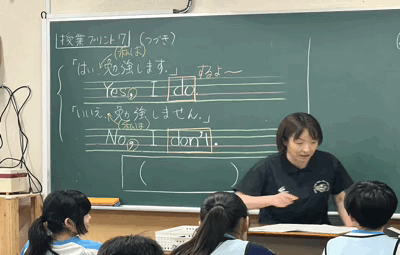 授業プリント7 (つづき)
(私は)
「はい、勉強します。」
するよ〜
Yes, I do.
「いいえ、勉強しません。」
(私は)
No, I don't.
( )